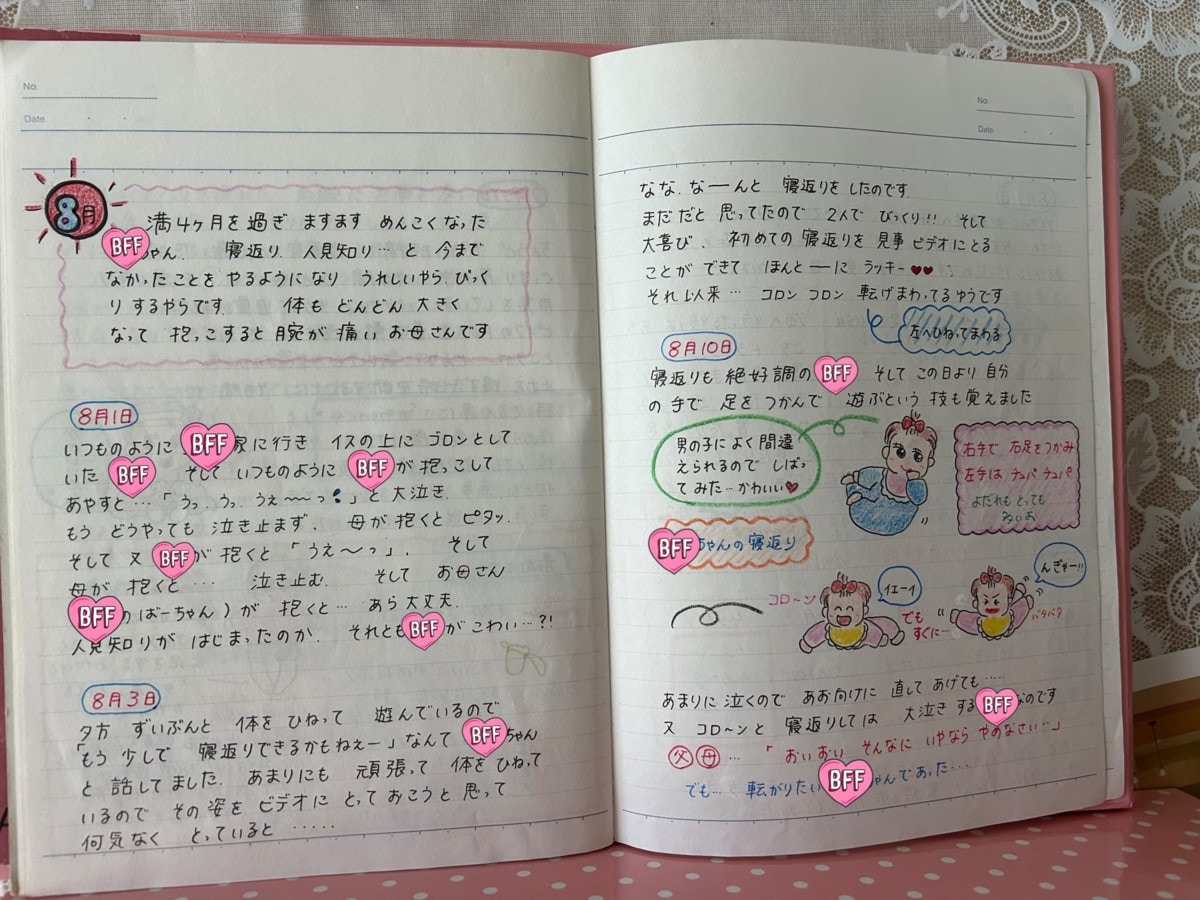 No.
Date
8月
満4ヶ月を過ぎ ますます めんこくなった
BFFちゃん. 寝返り.人見知り…と 今まで
なかったことを やるようになり うれしいやら びっく
りするやらです 体も どんどん 大きく
なって 抱っこすると 腕が 痛い お母さんです
8月1日
いつものように BFF家に行き イスの上に ゴロンとして
いた BFF そして いつものように BFFが 抱っこして
あやすと…「うっ.うっ.うぇ〜〜っ」と 大泣き.
もう どうやっても 泣き止まず. 母が 抱くと ピタッ.
そして 又 BFFが 抱くと「うえ〜っ」. そして
母が 抱くと… 泣き止む. そして お母さん
BFFのばーちゃん)が 抱くと… あら大丈夫.
人見知りが はじまったのか. それとも BFFが こわい…?!
8月3日
夕方 ずいぶんと 体を ひねって 遊んでいるので
「もう 少しで 寝返りできるかもねぇー」なんて BFFちゃん
と 話してました. あまりにも 頑張って 体を ひねって
いるので その姿を ビデオに とっておこうと 思って
何気なく とっていると ‥‥‥
No.
Date
なな.なーんと 寝返りを したのです.
まだだと 思ってたので 2人で びっくり!! そして
大喜び. 初めての 寝返りを 見事 ビデオにとる
ことが できて ほんとーに ラッキー♥♥
それ以来… コロン コロン 転げまわってる ゆうです
左へひねってまわる
8月10日
寝返りも 絶好調の BFF そして この日より 自分
の 手で 足を つかんで 遊ぶという 技も覚えました
男の子に よく 間違
えられるので しばっ
てみた…かわいい♥
右手で 右足をつかみ
左手は チュパ チュパ
よだれも とっても
BFFちゃんの 寝返り
コロ〜ン
イエーイ
でも
すぐに…
んぎゃー!!
バタバタ
あまりに 泣くので あお向けに 直して あげても‥‥
又 コロ〜ンと 寝返りしては 大泣き する BFFなのです
父 母 …「おいおい そんなに いやなら やめなさい…」
でも… 転がりたい BFFちゃんであった…